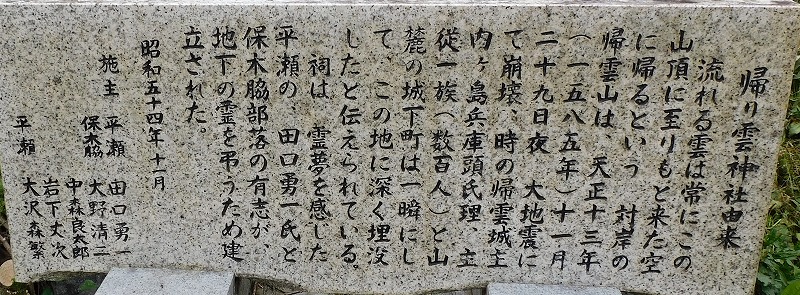 帰り雲神社由来
流れる雲は常にこの
山頂に至りもと来た空
に帰るという 対岸の
帰雲山は、天正十三年
(一五八五年)十一月
二十九日夜 大地震に
て崩壊、時の帰雲城主
内ヶ島兵庫頭氏理、主
従一族(数百人)と山
麓の城下町は一瞬にし
て、この地に深く埋没
したと伝えられている。
祠は 霊夢を感じた
平瀬の、田口勇一氏と
保木脇部落の有志が、
地下の霊を弔うため建
立された。
昭和五十四年十一月
施主 平瀬 田口勇一
保木脇 大野清二
中森良太郎
岩下丈次
平瀬 大沢森繁